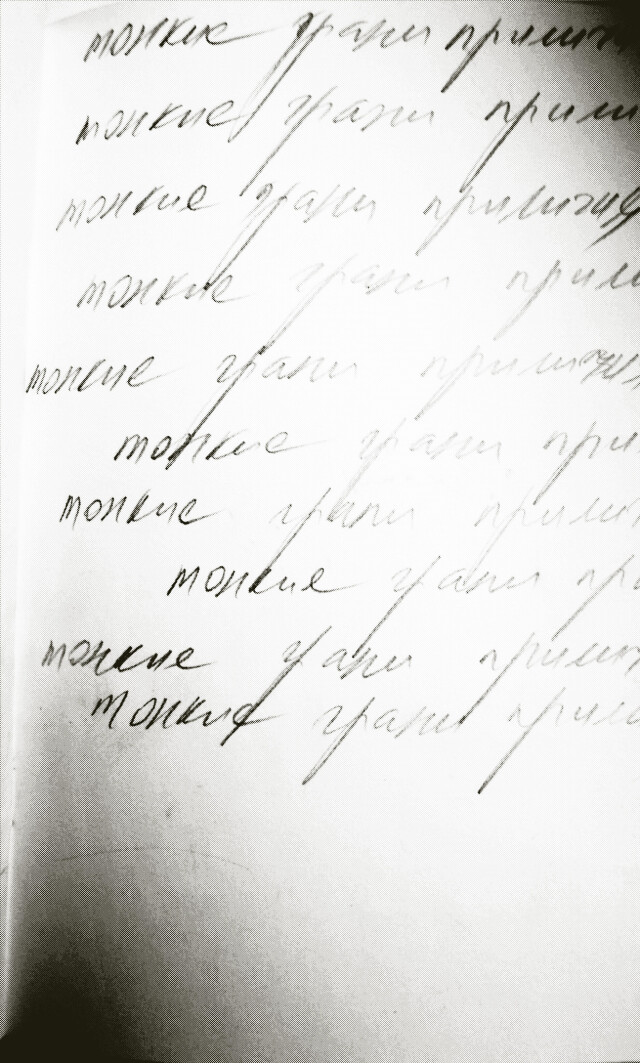 тонкие грани прилич
тонкие грани прили
тонкие грани приличия
тонкие грани прили
тонкие грани прилич
тонкие грани при
тонкие грани прилич
тонкие грани пр
тонкие грани прилич
тонкие грани прили